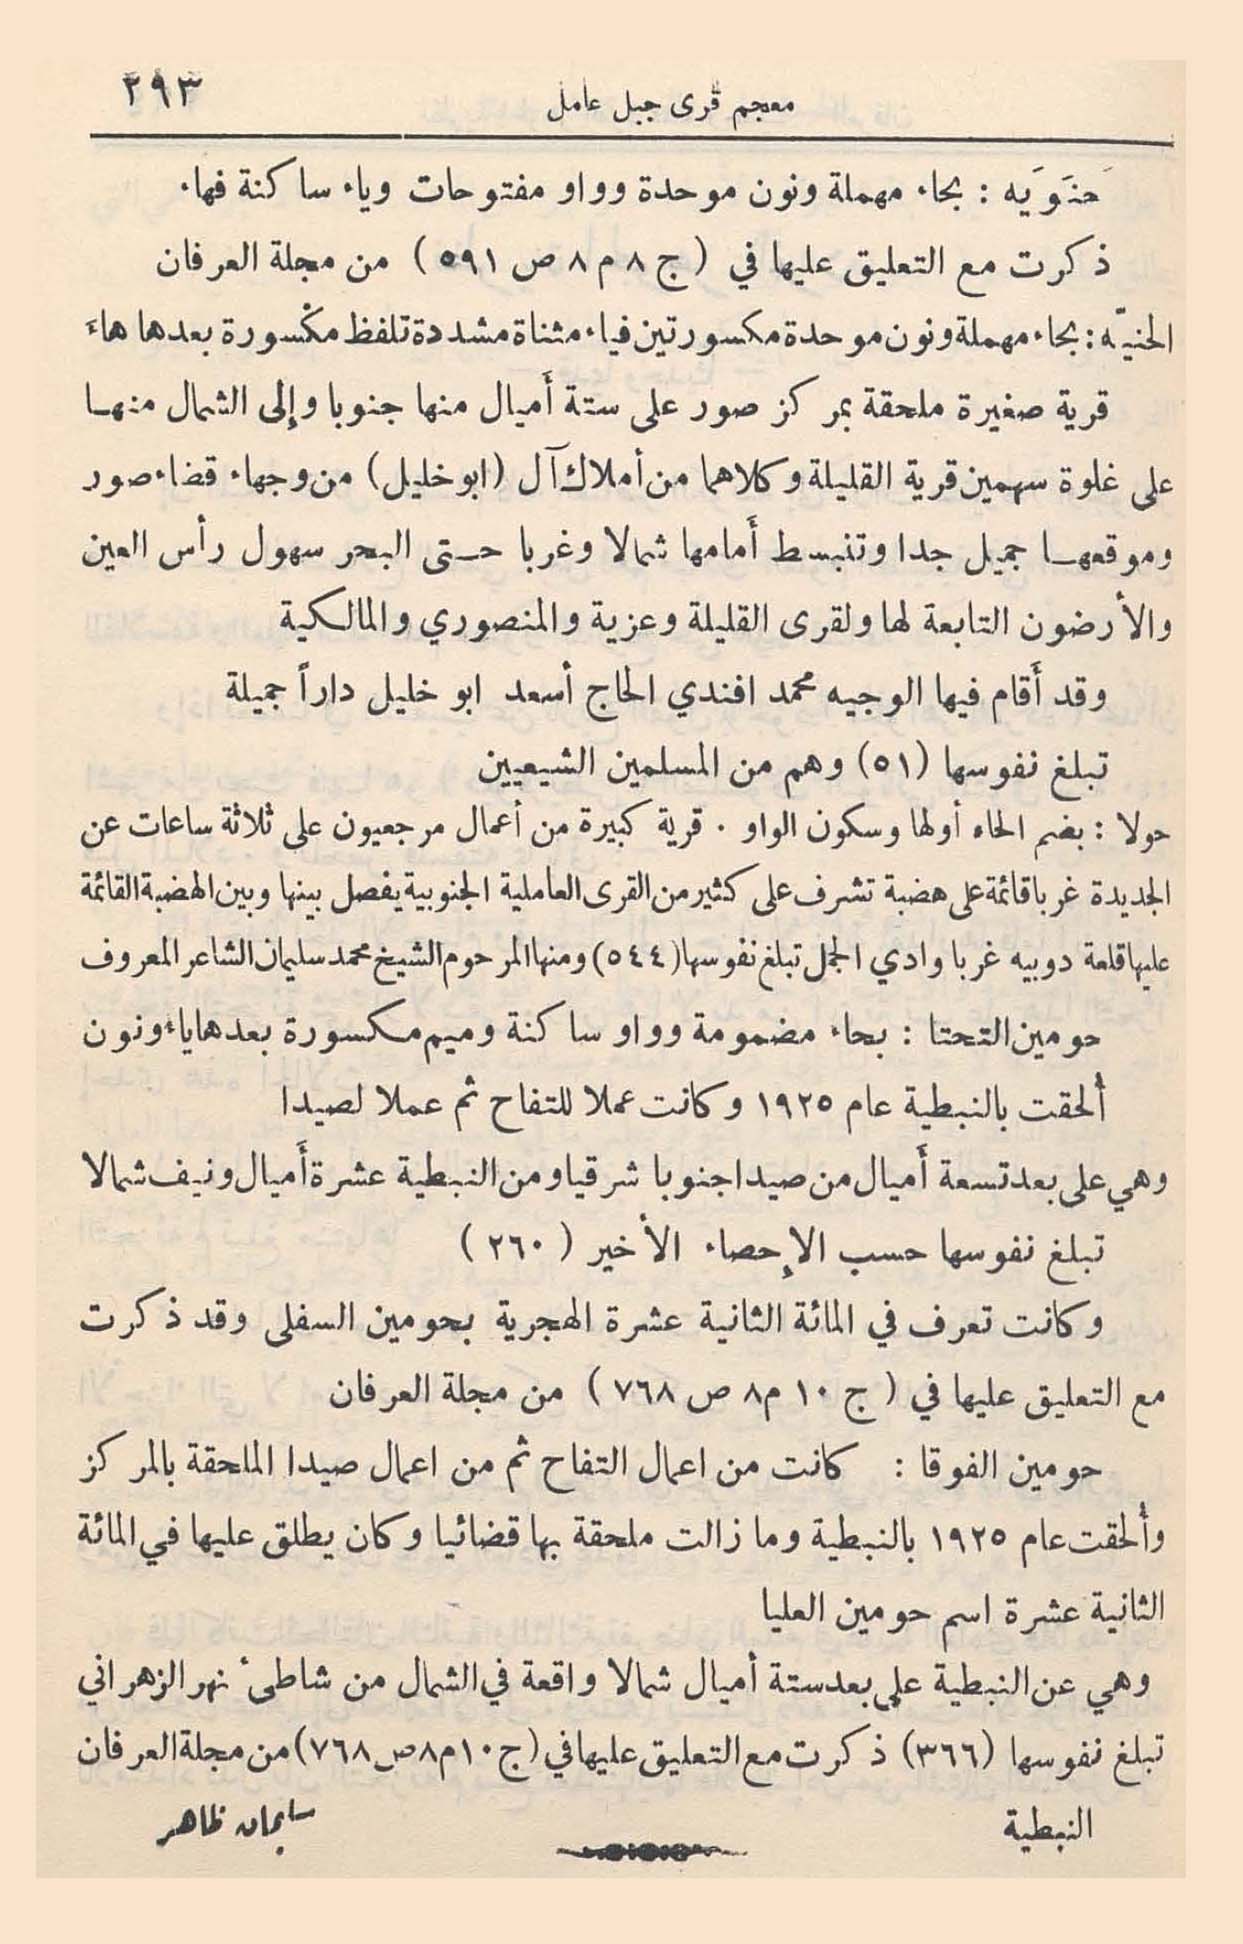 معجم قرى جبل عامل ٢٩٣
حَنَوَيه : بحاء مهملة ونون موحدة وواو مفتوحات وياء ساكنة فهاء
ذكرت مع التعليق عليها في ( ج ٨ م ٨ ص ٥٩١ ) من مجلة العرفان
الحنيّه : بحاء مهملة ونون موحدة مكسورتين فياء مثناة مشددة تلفظ مكسورة بعدها هاء
قرية صغيرة ملحقة بمركز صور على ستة أَميال منها جنوبا وإلى الشمال منها
على غلوة سهمين قرية القليلة وكلاهما من أملاك آل (ابو خليل) من وجهاء قضاء صور
وموقعها جميل جدا وتنبسط أَمامها شمالا وغربا حتى البحر سهول رأس العين
والأرضون التابعة لها ولقرى القليلة وعزية والمنصوري والمالكية
وقد أَقام فيها الوجيه محمد افندي الحاج أسعد ابو خليل داراً جميلة
تبلغ نفوسها (٥١) وهم من المسلمين الشيعيين
حولا : بضم الحاء أولها وسكون الواو . قرية كبيرة من أعمال مرجعيون على ثلاثة ساعات عن
الجديدة غربا قائمة على هضبة تشرف على كثير من القرى العاملية الجنوبية يفصل بينها وبين الهضبة القائمة
عليها قلعة دوبيه غربا وادي الجمل تبلغ نفوسها (٥٤٤) ومنها المرحوم الشيخ محمد سليمان الشاعر المعروف
حومين التحتا : بحاء مضمومة وواو ساكنة وميم مكسورة بعدها ياء ونون
أُلحقت بالنبطية عام ١٩٢٥ وكانت عملا للتفاح ثم عملا لصيدا
وهي على بعد تسعة أَميال من صيدا جنوبا شرقيا ومن النبطية عشرة أَميال ونيف شمالا
تبلغ نفوسها حسب الإحصاء الأخير ( ٢٦٠ )
وكانت تعرف في المائة الثانية عشرة الهجرية بحومين السفلى وقد ذكرت
مع التعليق عليها في ( ج ١٠ م ٨ ص ٧٦٨ ) من مجلة العرفان
حومين الفوقا : كانت من اعمال التفاح ثم من اعمال صيدا الملحقة بالمركز
وأُلحقت عام ١٩٢٥ بالنبطية وما زالت ملحقة بها قضائيا وكان يطلق عليها في المائة
الثانية عشرة اسم حومين العليا
وهي عن النبطية على بعد ستة أميال شمالا واقعة في الشمال من شاطىء نهر الزهراني
تبلغ نفوسها (٣٦٦) ذكرت مع التعليق عليها في (ج ١٠ م ٨ ص ٧٦٨) من مجلة العرفان
النبطية سليمان ظاهر